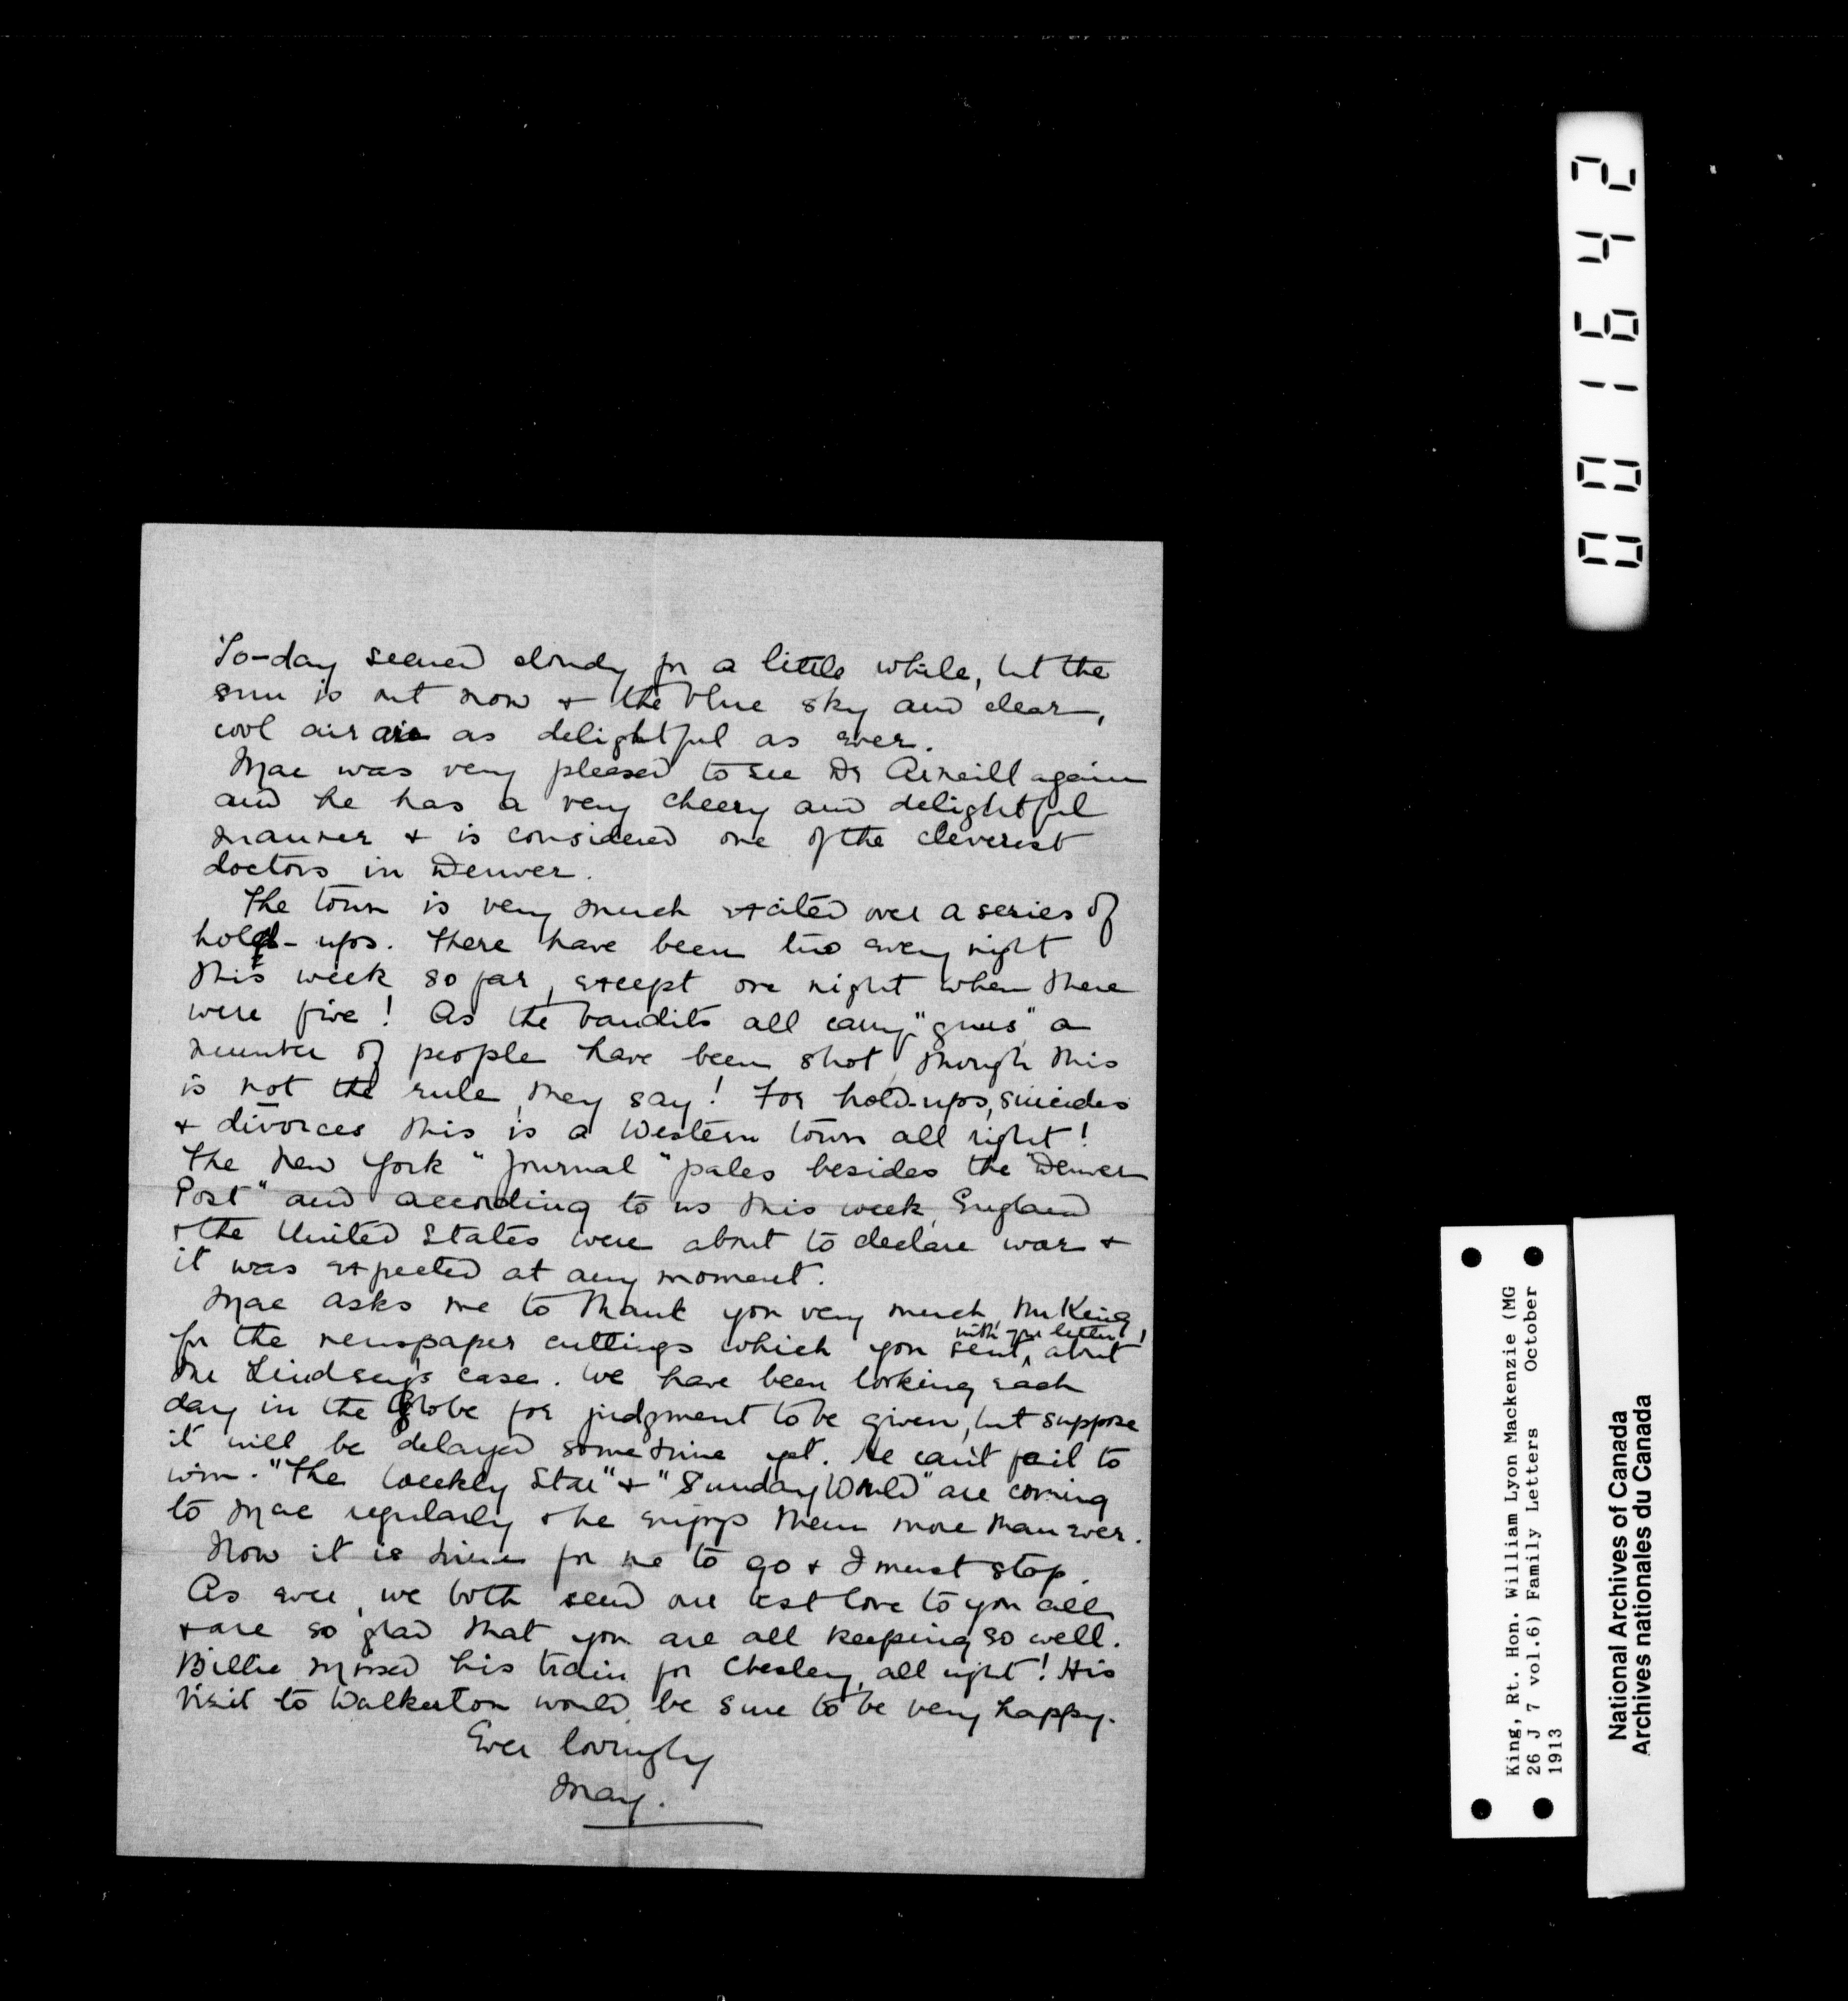 To-day seemed cloudy for a little while, but the
sun is out now + the blue sky and clear,
cool air are as delightful as ever.
Mac was very pleased to see Dr Arneill again
and he has a very cheery and delightful
manner + is considered one of the cleverest
doctors in Denver.
The town is very much excited over a series of
hold-ups. There have been two every night
this week so far, except one night when there
were five! As the bandits all carry "guns" a
number of people have been shot, though this
is not the rule, they say! For hold-ups, suicides
+ divorces this is a Western town all right!
The New York "Journal" pales besides the "Denver
Post" and according to us this week, England
+ the United States were about to declare war +
it was expected at any moment.
Mac asks me to thank you very much, Mr King,
for the newspaper cuttings which you sent, with your letter, about
Mr Lindsey's case. We have been looking each
day in the Globe for judgment to be given, but suppose
it will be delayed some time yet. He can't fail to
win. "The Weekly Star" + "Sunday World" are coming
to Mac regularly + he enjoys them more than ever.
Now it is time for me to go + I must stop.
As ever, we both send our best love to you all
+ are so glad that you are all keeping so well.
Billie missed his train for Chesley, all right! His
visit to Walkerton would be sure to be very happy.
Ever lovingly
May.
001642
King, Rt. Hon. William Lyon Mackenzie (MG
26 J 7 vol.6) Family Letters October
1913
National Archives of Canada
Archives nationales du Canada